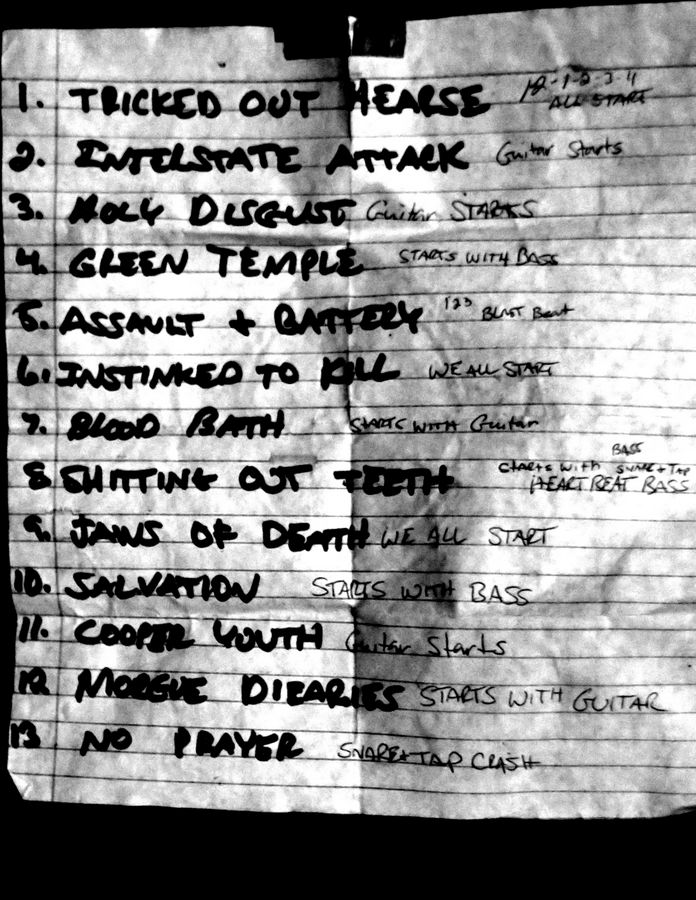 1. TRICKED OUT HEARSE 1-2-3-4
ALL START
2. INTELSTATE ATTACK Guitar Starts
3. HOLY DISGUST Guitar STARTS
4. GREEN TEMPLE STARTS WITH BASS
5. ASSAULT + BATTERY 123 BLAST Beat
6. INSTINKED TO KILL WE ALL START
7. BLOOD BATH STARTS WITH Guitar
BASS
8 SHITTING OUT TEETH STARTS with SNARE+TAP
HEART BEAT BASS
9. JAWS OF DEATH WE ALL START
10. SALVATION STARTS WITH BASS
11. COOPER YOUTH Guitar Starts
12 MORGUE DIEARIES STARTS WITH GUITAR
13 NO PRAYER SNARE+TAP CRASH